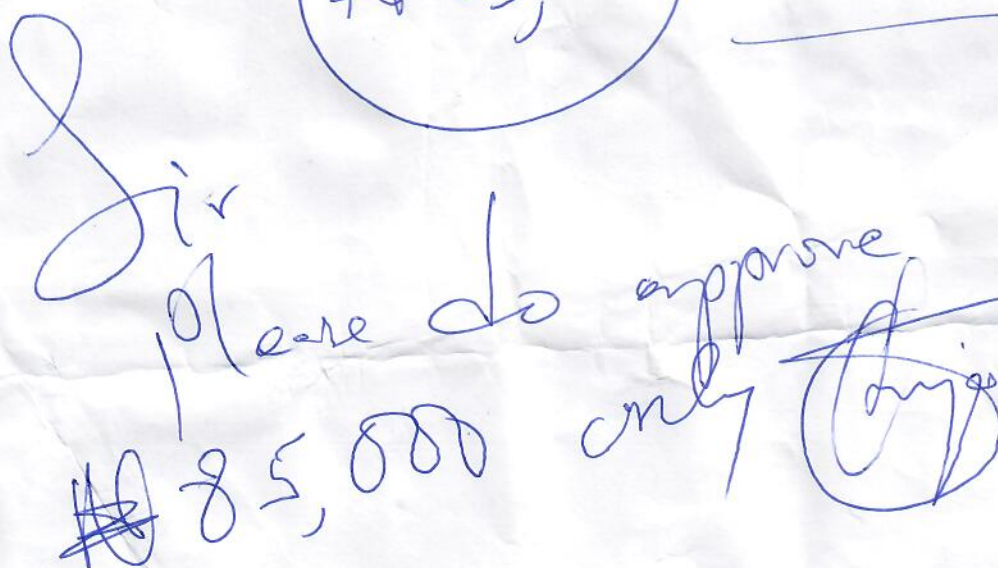 Sir
Please do approve
₦85,000 only